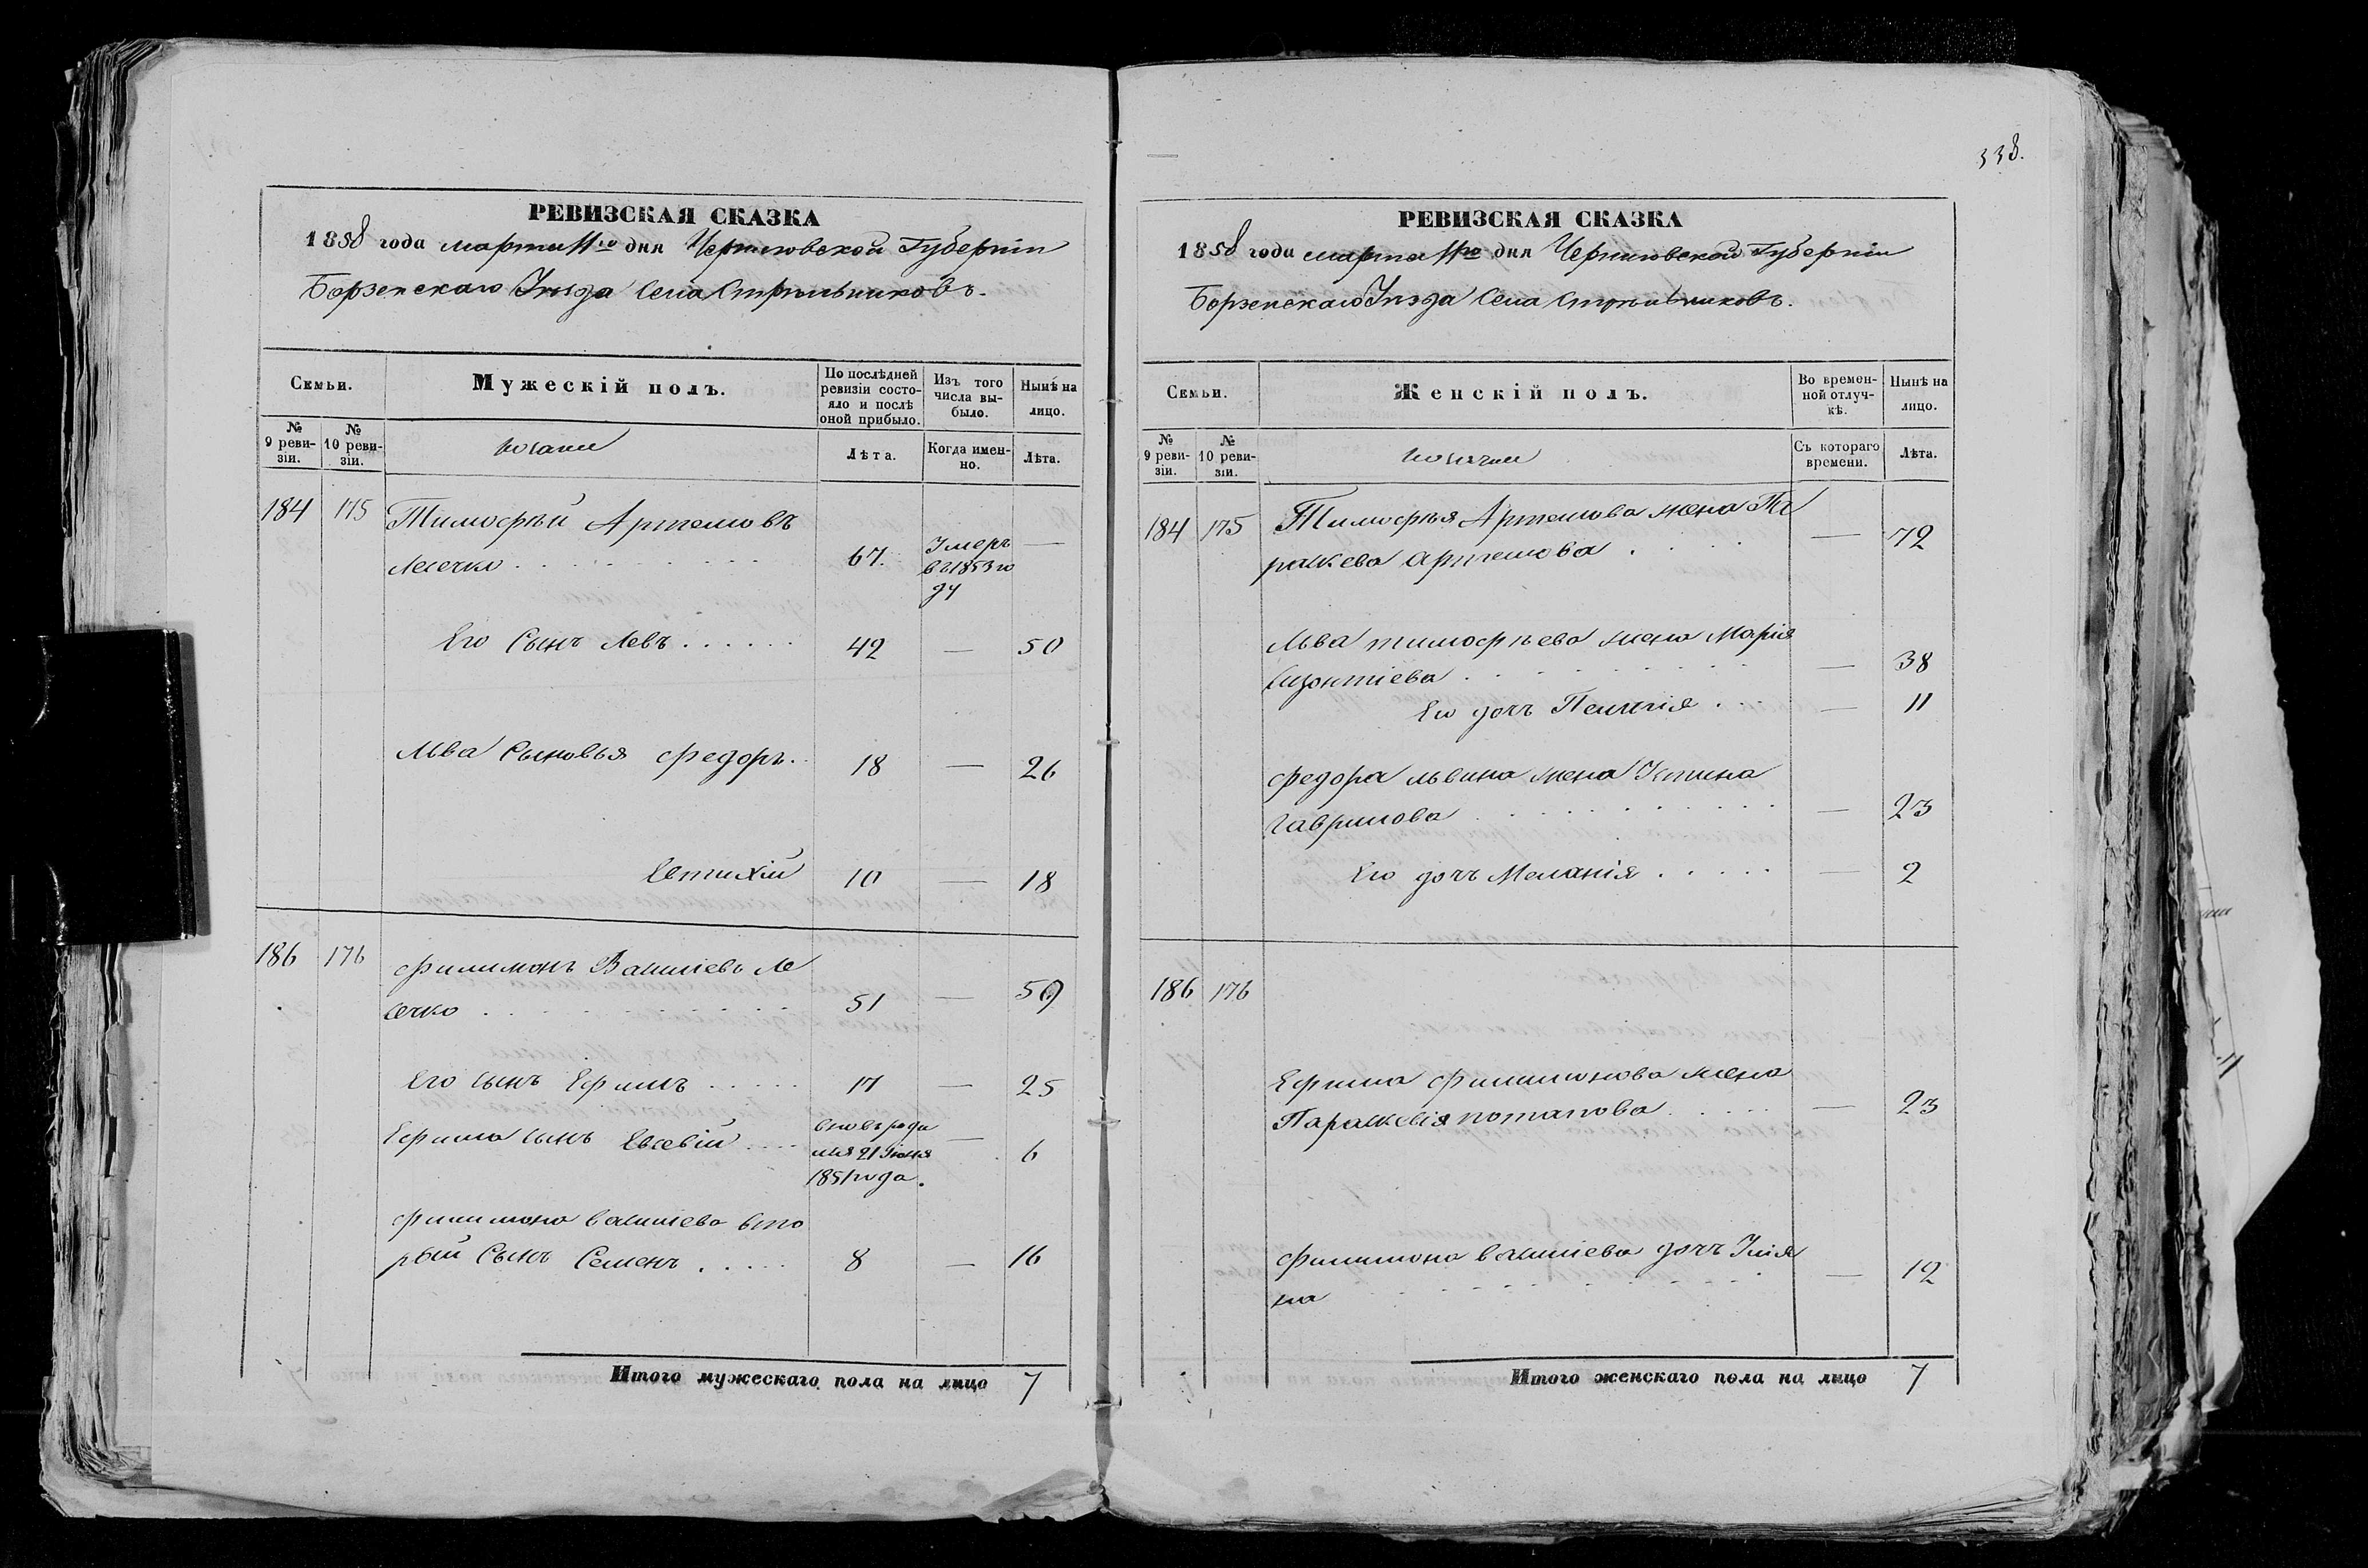 338.
РЕВИЗСКАЯ СКАЗКА
1858 года марта 11го дня Черниговской Губерніи
Борзенскаго Уѣзда Села Стрѣльниковъ.
Семьи.
Мужескій полъ.
По послѣдней ревизіи состояло и послѣ оной прибыло.
Изъ того числа выбыло.
Нынѣ на лицо.
№ 9 ревизіи.
№ 10 ревизіи.
Лѣта.
Когда именно.
Лѣта.
184 175 Тимофѣй Артемовъ
67. Умеръ —
в 1853 го
ду
Его Сынъ Левъ . . . . . . 42 — 50
Льва Сыновья Федоръ . . 18 — 26
Евтихій 10 — 18
186 176 Филимонъ Ле
сечко . . . . . . . . . 51 — 59
Его сынъ Ефимъ . . . . . 17 — 25
Ефима сынъ Евсевій . . . . вновь роди — 6
лся 21 Іюня
1851 года.
Филимона вто
рый Сынъ Семенъ . . . . . 8 — 16
Итого мужескаго пола на лицо 7
РЕВИЗСКАЯ СКАЗКА
1858 года марта 11го дня Черниговской Губерніи
Борзенскаго Уѣзда Села Стрѣльниковъ.
Семьи.
Женскій полъ.
Во временной отлучкѣ.
Нынѣ на лицо.
№ 9 ревизіи.
№ 10 ревизіи.
Съ котораго времени.
Лѣта.
184 175 Тимофѣя Артемова жена Па
раскева Артемова . . . . — 72
Льва тимофѣева жена Марія
. . . . . . . . — 38
Его дочь Пелагія . . . — 11
Федора львина жена Устина
Гаврилова . . . . . . . . . — 23
Его дочь Меланія . . . . . — 2
186 176
Ефима филимонова жена
Параскевія потапова . . . . — 23
Филимона дочь Улія
на . . . . . . . . . — 12
Итого женскаго пола на лицо 7